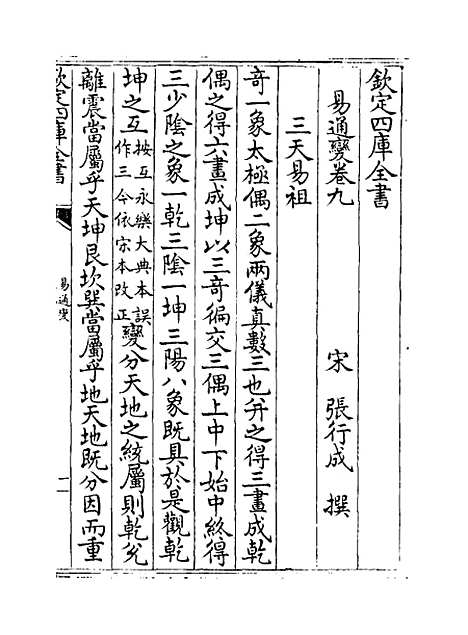 欽定四庫全書
易通變卷九
宋 張行成 撰
三天易祖
奇一象太極偶二象兩儀真數三也并之得三畫成乾
偶之得六畫成坤以三奇徧交三偶上中下始中終得
三少陰之象一乾三陰一坤三陽八象既具於是觀乾
坤之互按互永樂大典本誤作三今依宋本改正變分天地之統屬則乾兌
離震當屬乎天坤艮坎巽當屬乎地天地既分因而重
欽定四庫全書
易通變
二